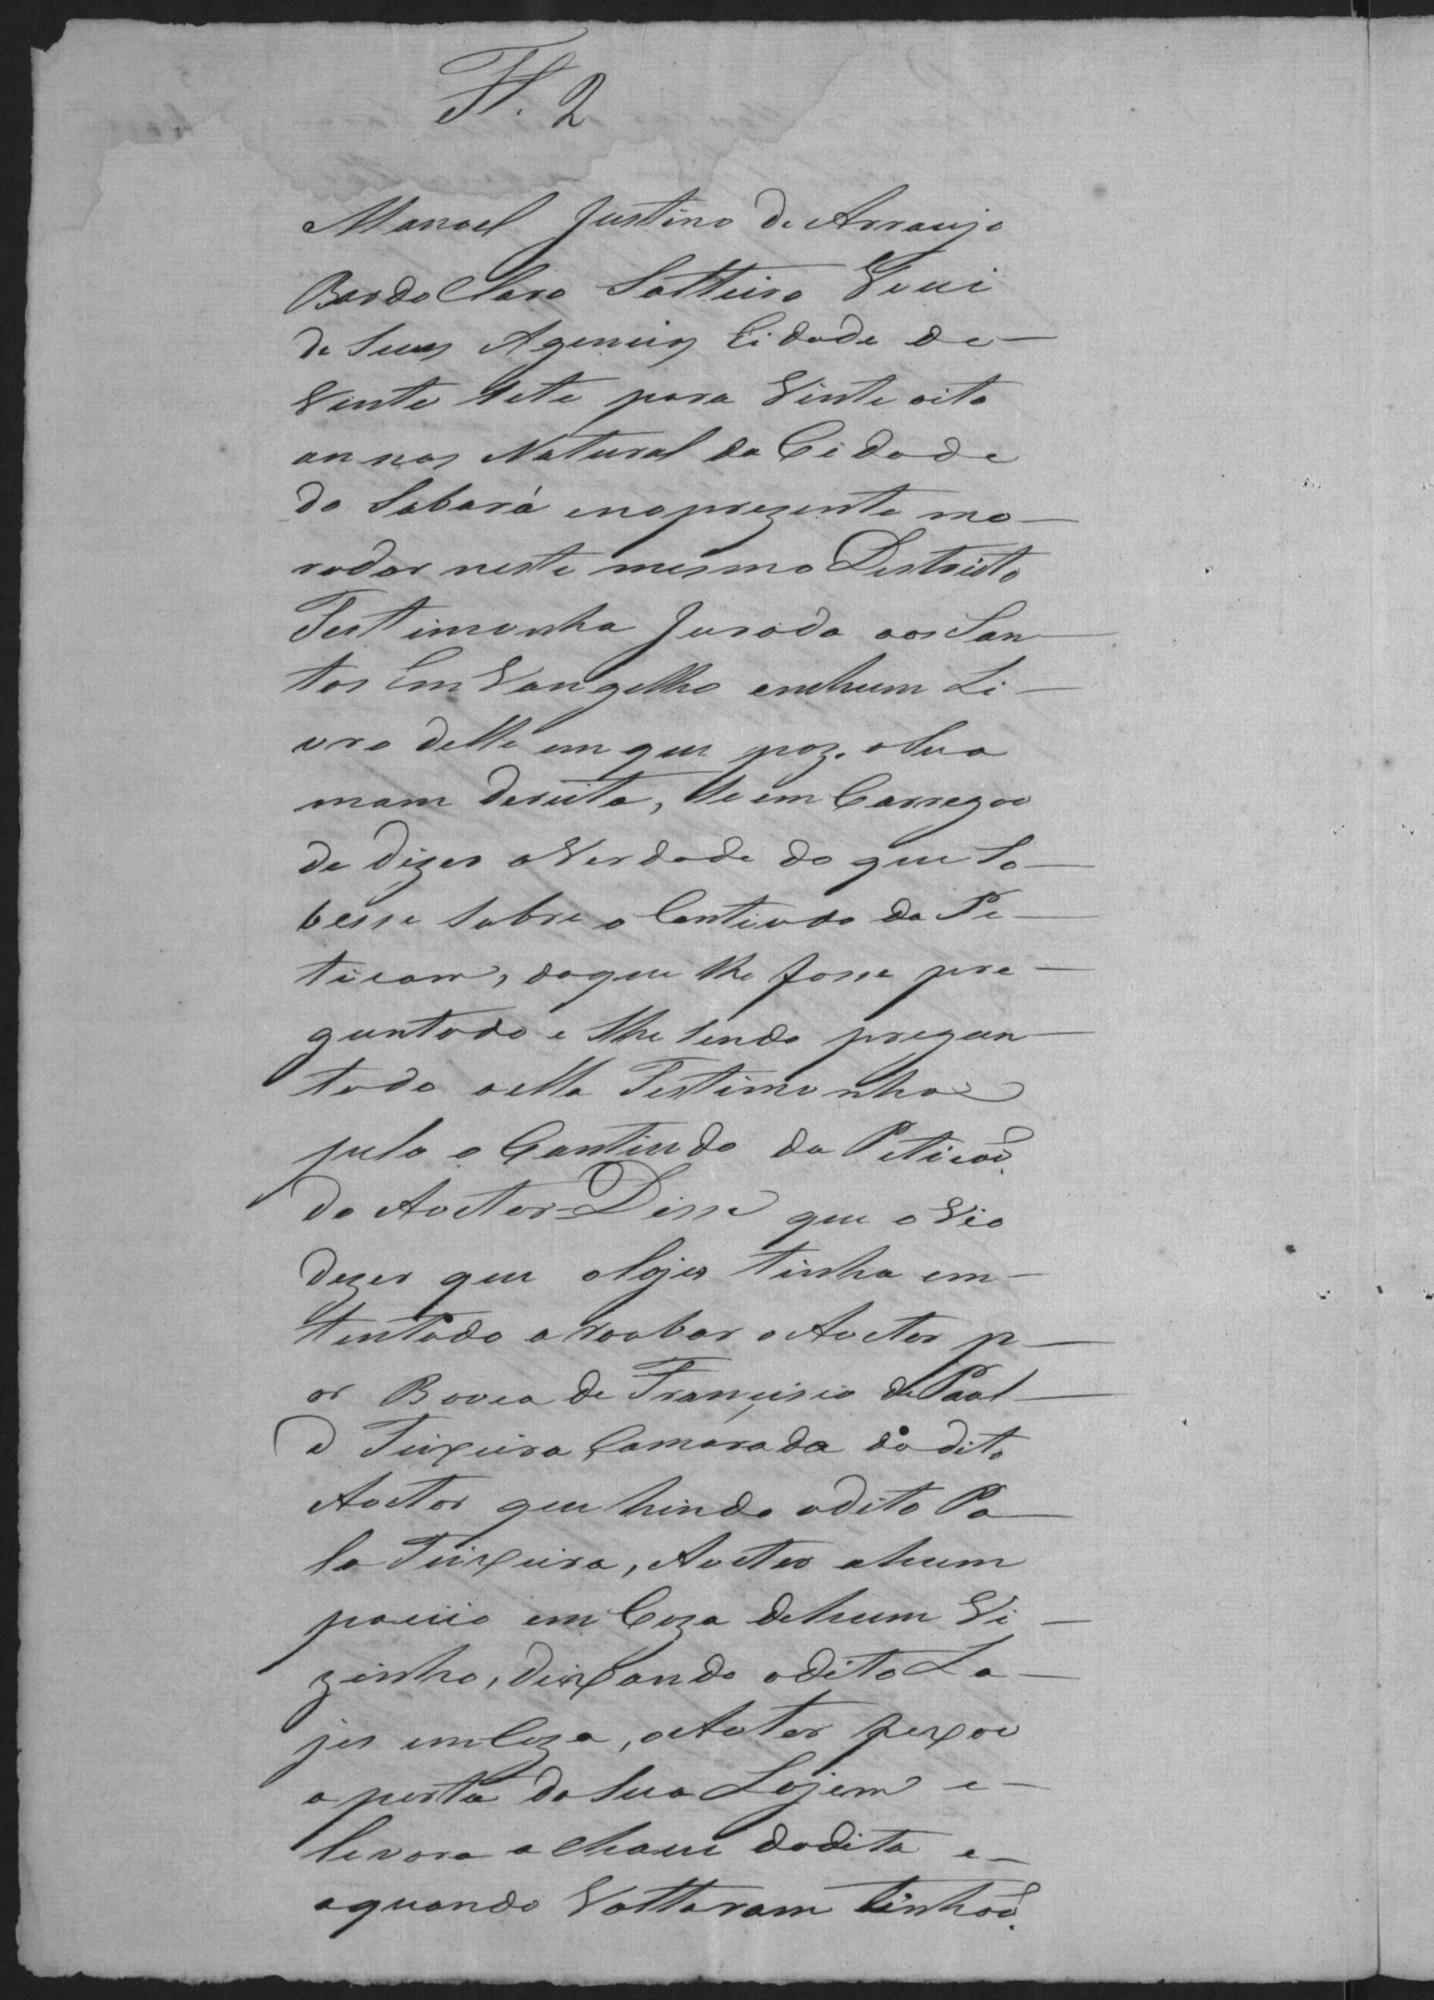 T. 2
Manoel Justino de Arraujo
Bardo Claro Soltteiro Veui
de Suas Agencias Cidade de
Vinte Sete para Vinte oito
annos Natural da Cidade
do Sabará enoprezente mo
rador neste mesmo Destricto
Testimonha Jurada aos San
tos Em Vangelho emhum Li
vro delle em que poz. a Sua
mam dereita, lhe em Carregoo
de dizer a Verdade do que So
besse Sobre o Contiudo da Pe
ticam, doque lhe fosse pre
guntado e lhe sendo pregun
tado a ella Testimonha
pelo o Contiudo da Peticaõ.
do Auctor = Disse que o Vio
dezer que o Lojes tinha em
tentado a roubar o Auctor p
or Bouca de Francisco de Paul
a Teixeira Camarada do dito
Auctor que hindo o dito Pa
la Teixeira, Auctor a hum
paciio em Caza de hum Vi
zinho, deixando o dito La
jes em Caza, o Autor feixou
a porta da Sua Lojem e
levara a chave da dita e
aquando Volttaram tinhaõ.